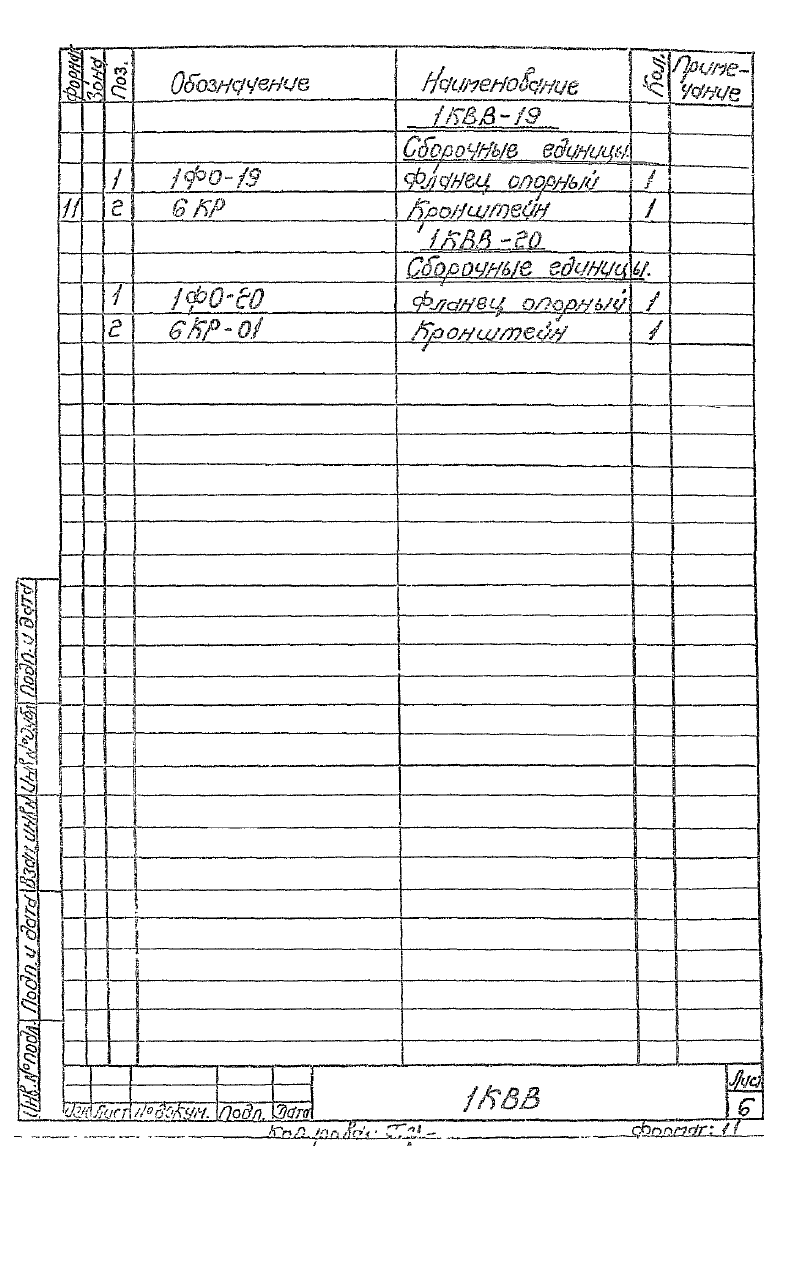 Формат Зона Поз. Обозначение Наименование Кол. Приме-
чание
1КВВ-19
Сборочные единицы.
1 1ФО-19 Фланец опорный 1
11 2 6КР Кронштейн 1
1КВВ-20
Сборочные единицы.
1 1ФО-20 Фланец опорный 1
2 6КР-01 Кронштейн 1
Подп. и дата
Инв. № дубл.
Взам. инв. №
Подп. и дата
Инв. № подл.
Изм Лист № докум. Подп. Дата
1КВВ
Лист
6
Формат: 11